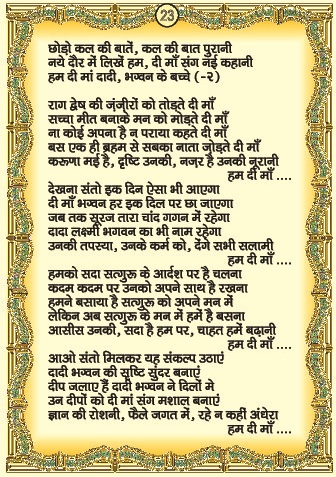 23
छोड़ो कल की बातें, कल की बात पुरानी
नये दौर में लिखें हम, दी माँ संग नई कहानी
हम दी मां दादी, भग्वन के बच्चे (-२)
राग द्वेष की जंजीरों को तोड़ते दी माँ
सच्चा मीत बनाके मन को मोड़ते दी माँ
ना कोई अपना है न पराया कहते दी माँ
बस एक ही ब्रहम से सबका नाता जोड़ते दी माँ
करूणा मई है, दृष्टि उनकी, नज़र है उनकी नूरानी
हम दी माँ ....
देखना संतो इक दिन ऐसा भी आएगा
दी माँ भग्वन हर इक दिल पर छा जाएगा
जब तक सूरज तारा चांद गगन में रहेगा
दादा लक्ष्मी भगवन का भी नाम रहेगा
उनकी तपस्या, उनके कर्म को, देंगे सभी सलामी
हम दी माँ ....
हमको सदा सत्गुरू के आर्दश पर है चलना
कदम कदम पर उनको अपने साथ है रखना
हमने बसाया है सत्गुरू को अपने मन में
लेकिन अब सत्गुरू के मन में हमें है बसना
आसीस उनकी, सदा है हम पर, चाहत हमें बढ़ानी
हम दी माँ ....
आओ संतो मिलकर यह संकल्प उठाएं
दादी भग्वन की सृष्टि सुंदर बनाएं
दीप जलाए हैं दादी भग्वन ने दिलों मे
उन दीपों को दी मां संग मशाल बनाएं
ज्ञान की रोशनी, फैले जगत में, रहे न कहीं अंधेरा
हम दी माँ ....